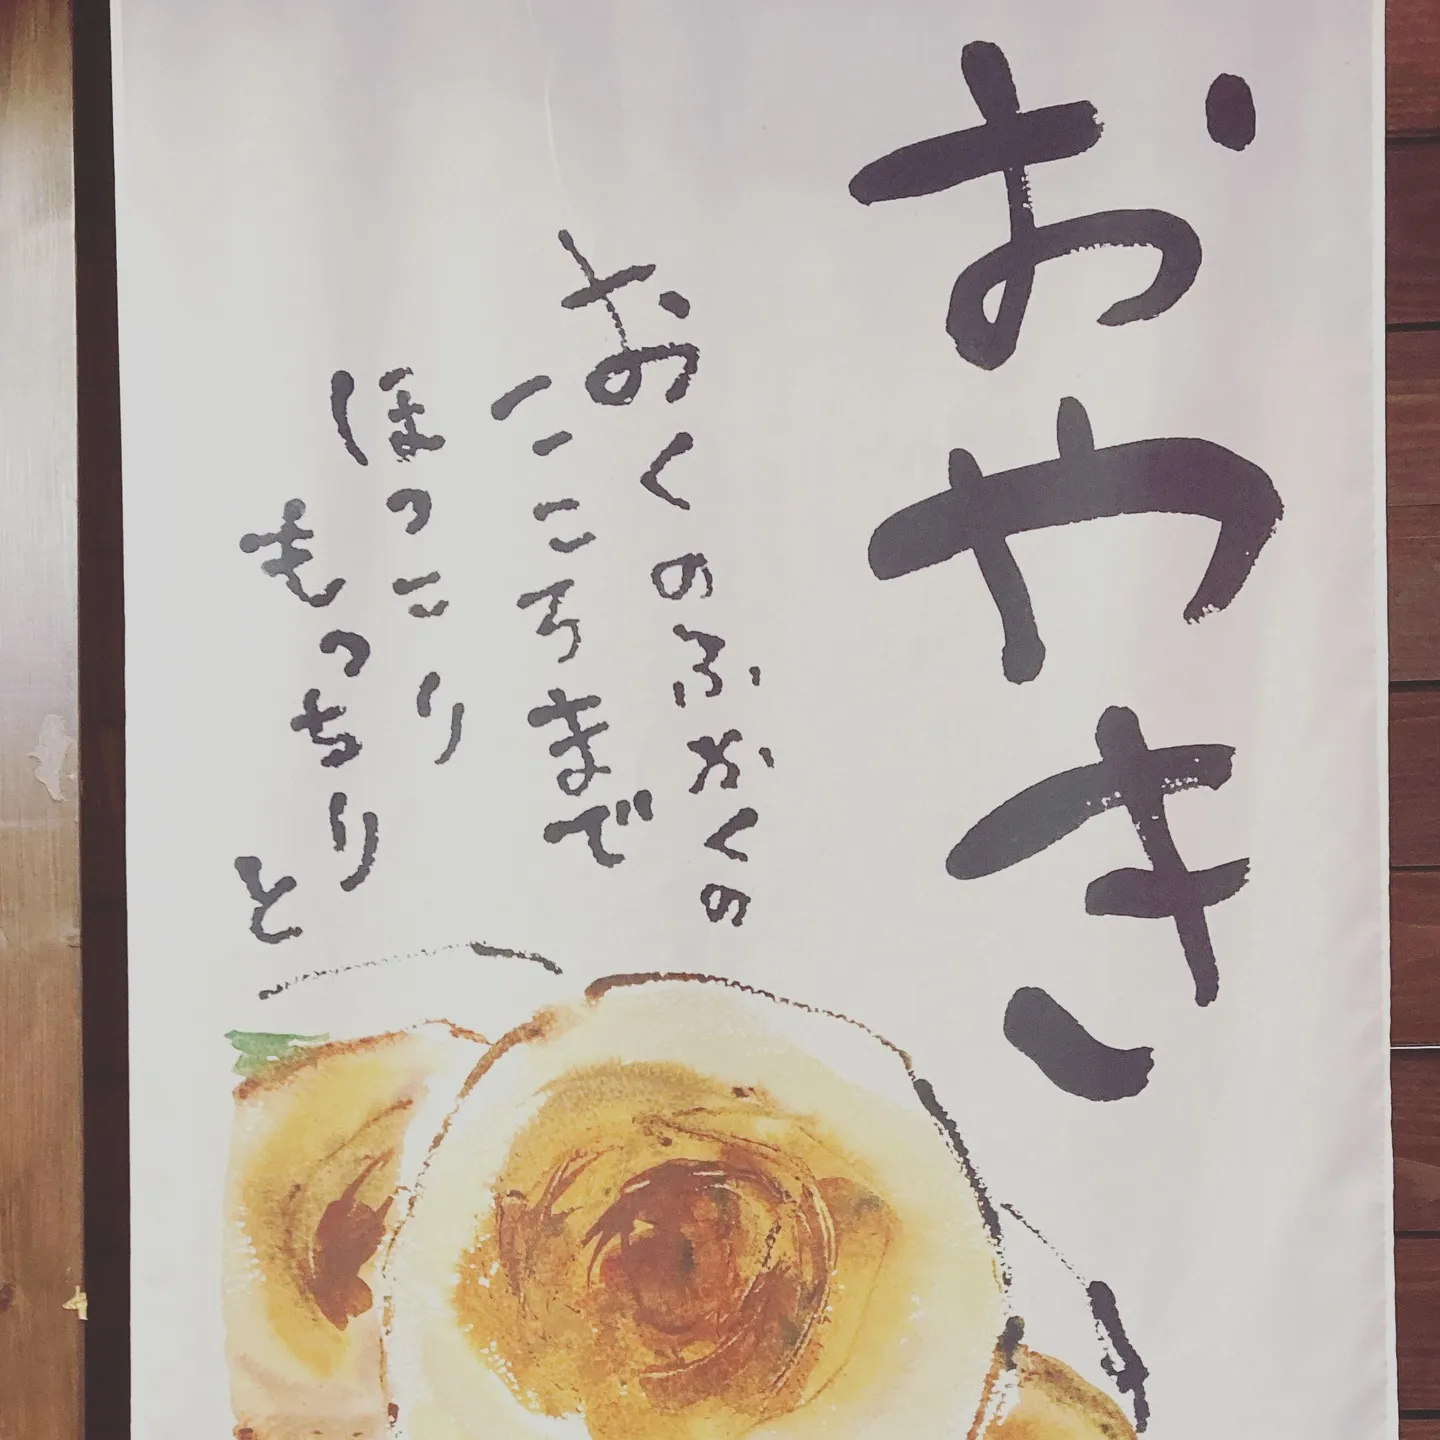 おやき
おくのふかくの
こころまで
ほっこり
もっちりと